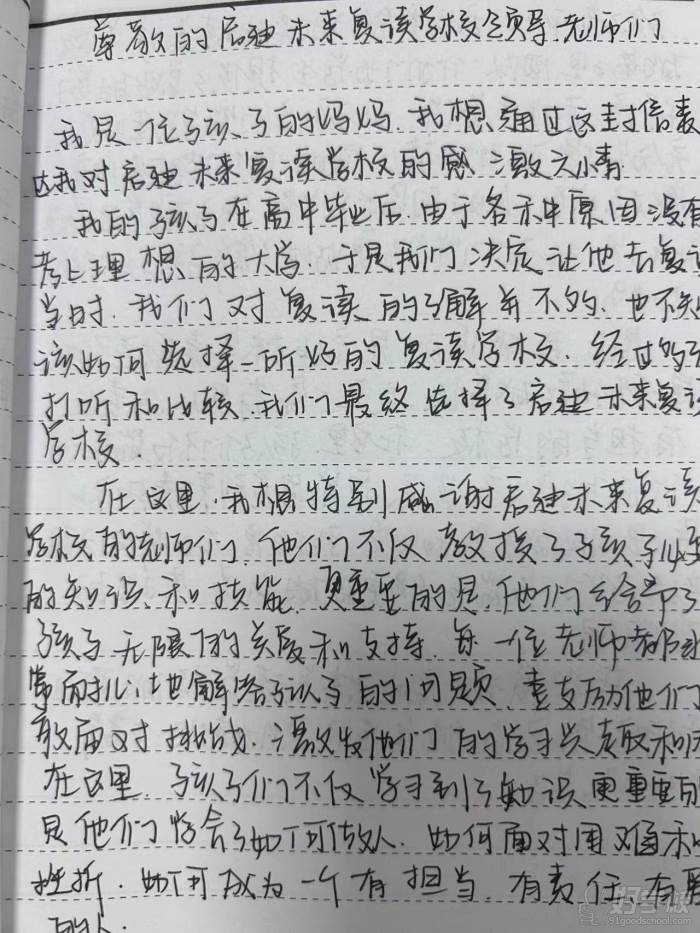 尊敬的启迪未来复读学校领导老师们
我是一位孩子的妈妈.我想通过这封信表
达我对启迪未来复读学校的感激之情
我的孩子在高中毕业后.由于各种原因没有
考上理想的大学.于是我们决定让他去复读
当时.我们对复读的了解并不多.也不知
该如何选择一所好的复读学校.经过多
打听和比较.我们最终选择了启迪未来复读
学校.
在这里.我想特别感谢启迪未来复读
学校的老师们.他们不仅教授了孩子必
的知识和技能.更重要的是.他们给予了
孩子无限的关爱和支持.每一位老师都
常耐心地解答孩子的问题.鼓励他们
敢面对挑战.激发他们的学习兴趣和
在这里.孩子们不仅学习到了知识更重要的
是他们学会了如何做人.如何面对困难和
挫折.如何成为一个有担当.有责任.有
的人.
好学校
91goodschool.com